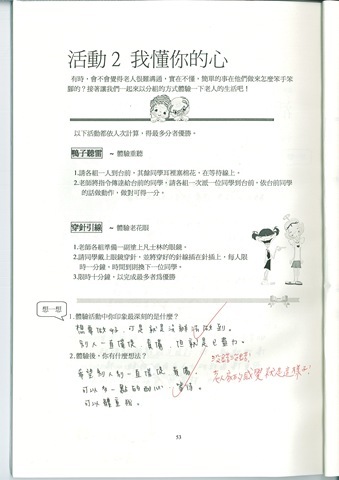 活動 2 我懂你的心
有時，會不會覺得老人很難溝通，實在不懂，簡單的事在他們做來怎麼笨手笨
腳的？接著讓我們一起來以分組的方式體驗一下老人的生活吧！
以下活動都依人次計算，得最多分者優勝。
鴨子聽雷 ~ 體驗重聽
1.請各組一人到台前，其餘同學耳裡塞棉花，在等待線上。
2.老師將指令傳達給台前的同學，請各組一次派一位同學到台前，依台前同學
的話做動作，做對可得一分。
穿針引線 ~ 體驗老花眼
1.老師各組準備一副塗上凡士林的眼鏡。
2.請同學戴上眼鏡穿針，並將穿好的針線插在針插上，每人限
時一分鐘，時間到則換下一位同學。
3.限時十分鐘，以完成最多者為優勝
想一想
1.體驗活動中你印象最深刻的是什麼？
想要做好，可是就是沒辦法做到。
別人一直催促、責備，但就是已盡力。
2.體驗後，你有什麼想法？
希望別人別一直催促、責備，
可以多一點的耐心、等待。
可以體重視。
沒錯沒錯！
老人家的感覺就是這樣子！
53